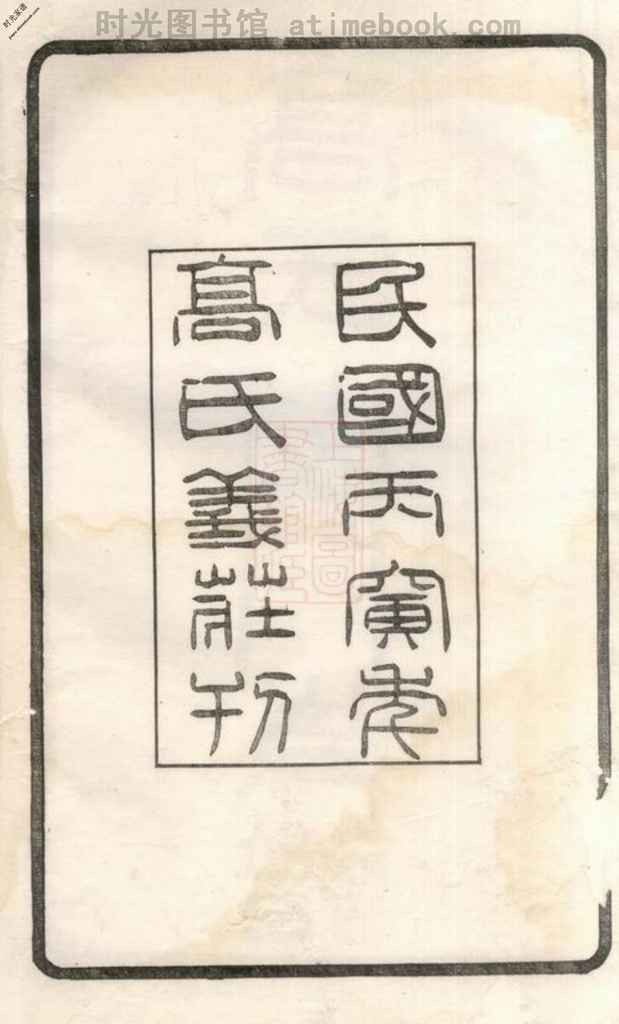 时光图书馆 atimebook.com
时光家谱
民國丙寅年
高氏義莊刊